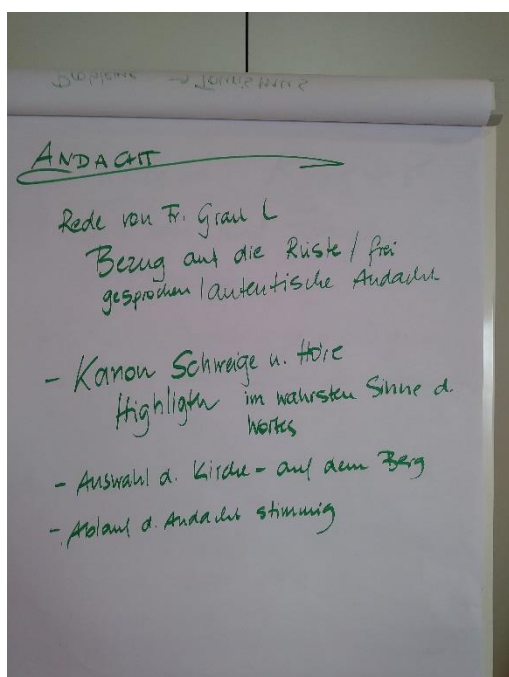 ANDACHT
Rede von Fr. Grau L
Bezug auf die Rüste / frei
gesprochen / autentische Andacht
- Kanon Schweige u. Höre
Highligth im wahrsten Sinne d.
Wortes
- Auswahl d. Kirche - auf dem Berg
- Ablauf d. Andacht stimmig